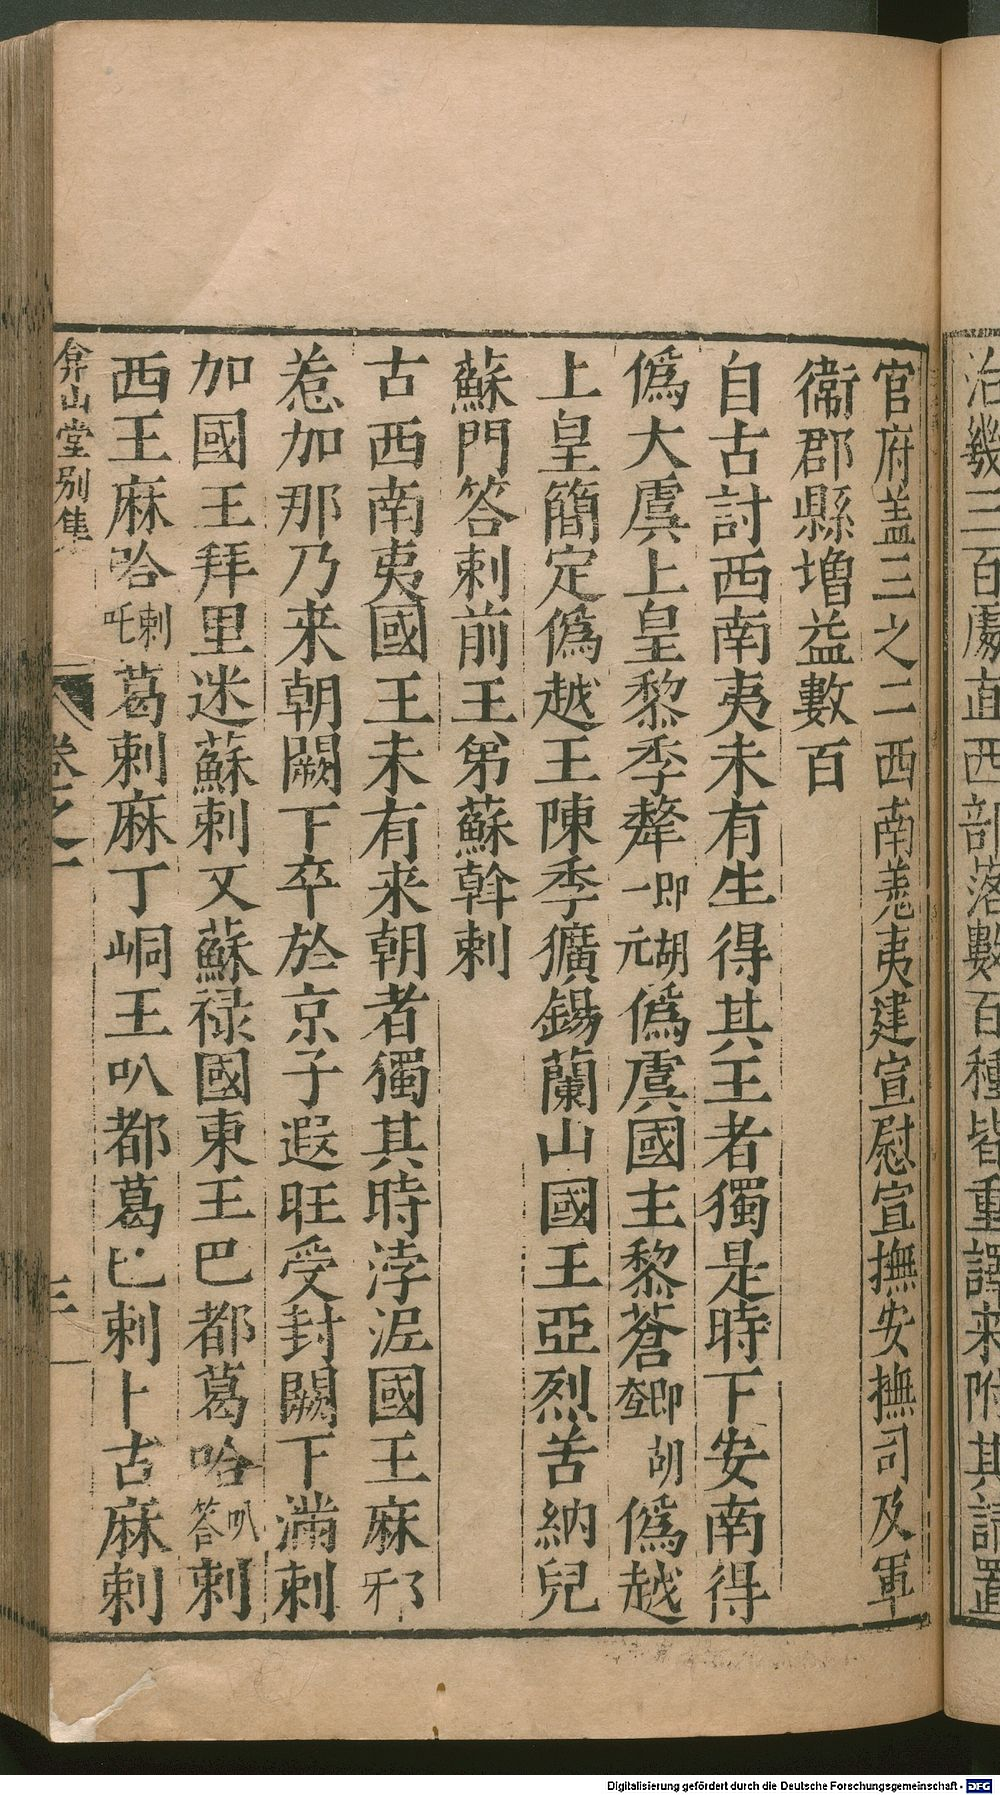 治幾三百處直西部落數百種皆重譯來附其請置
官府盖三之二西南羌夷建宣慰宣撫安撫司及軍
衞郡縣增益數百
自古討西南夷未有生得其王者獨是時下安南得
僞大虞上皇黎季犛即胡一元僞虞國主黎蒼即胡𡗨僞越
上皇簡定僞越王陳季擴錫蘭山國王亞烈苦納兒
蘇門答剌前王弟蘇幹剌
古西南夷國王未有来朝者獨其時浡泥國王麻邪
惹加那乃来朝闕下卒於京子遐旺受封闕下滿剌
加國王拜里迷蘇剌又蘇祿國東王巴都葛哈叭答剌
西王麻哈剌吒葛剌麻丁峒王叭都葛巴剌卜古麻剌
弇山堂别集
卷之一
三
Digitalisierung gefördert durch die Deutsche Forschungsgemeinschaft - DFG